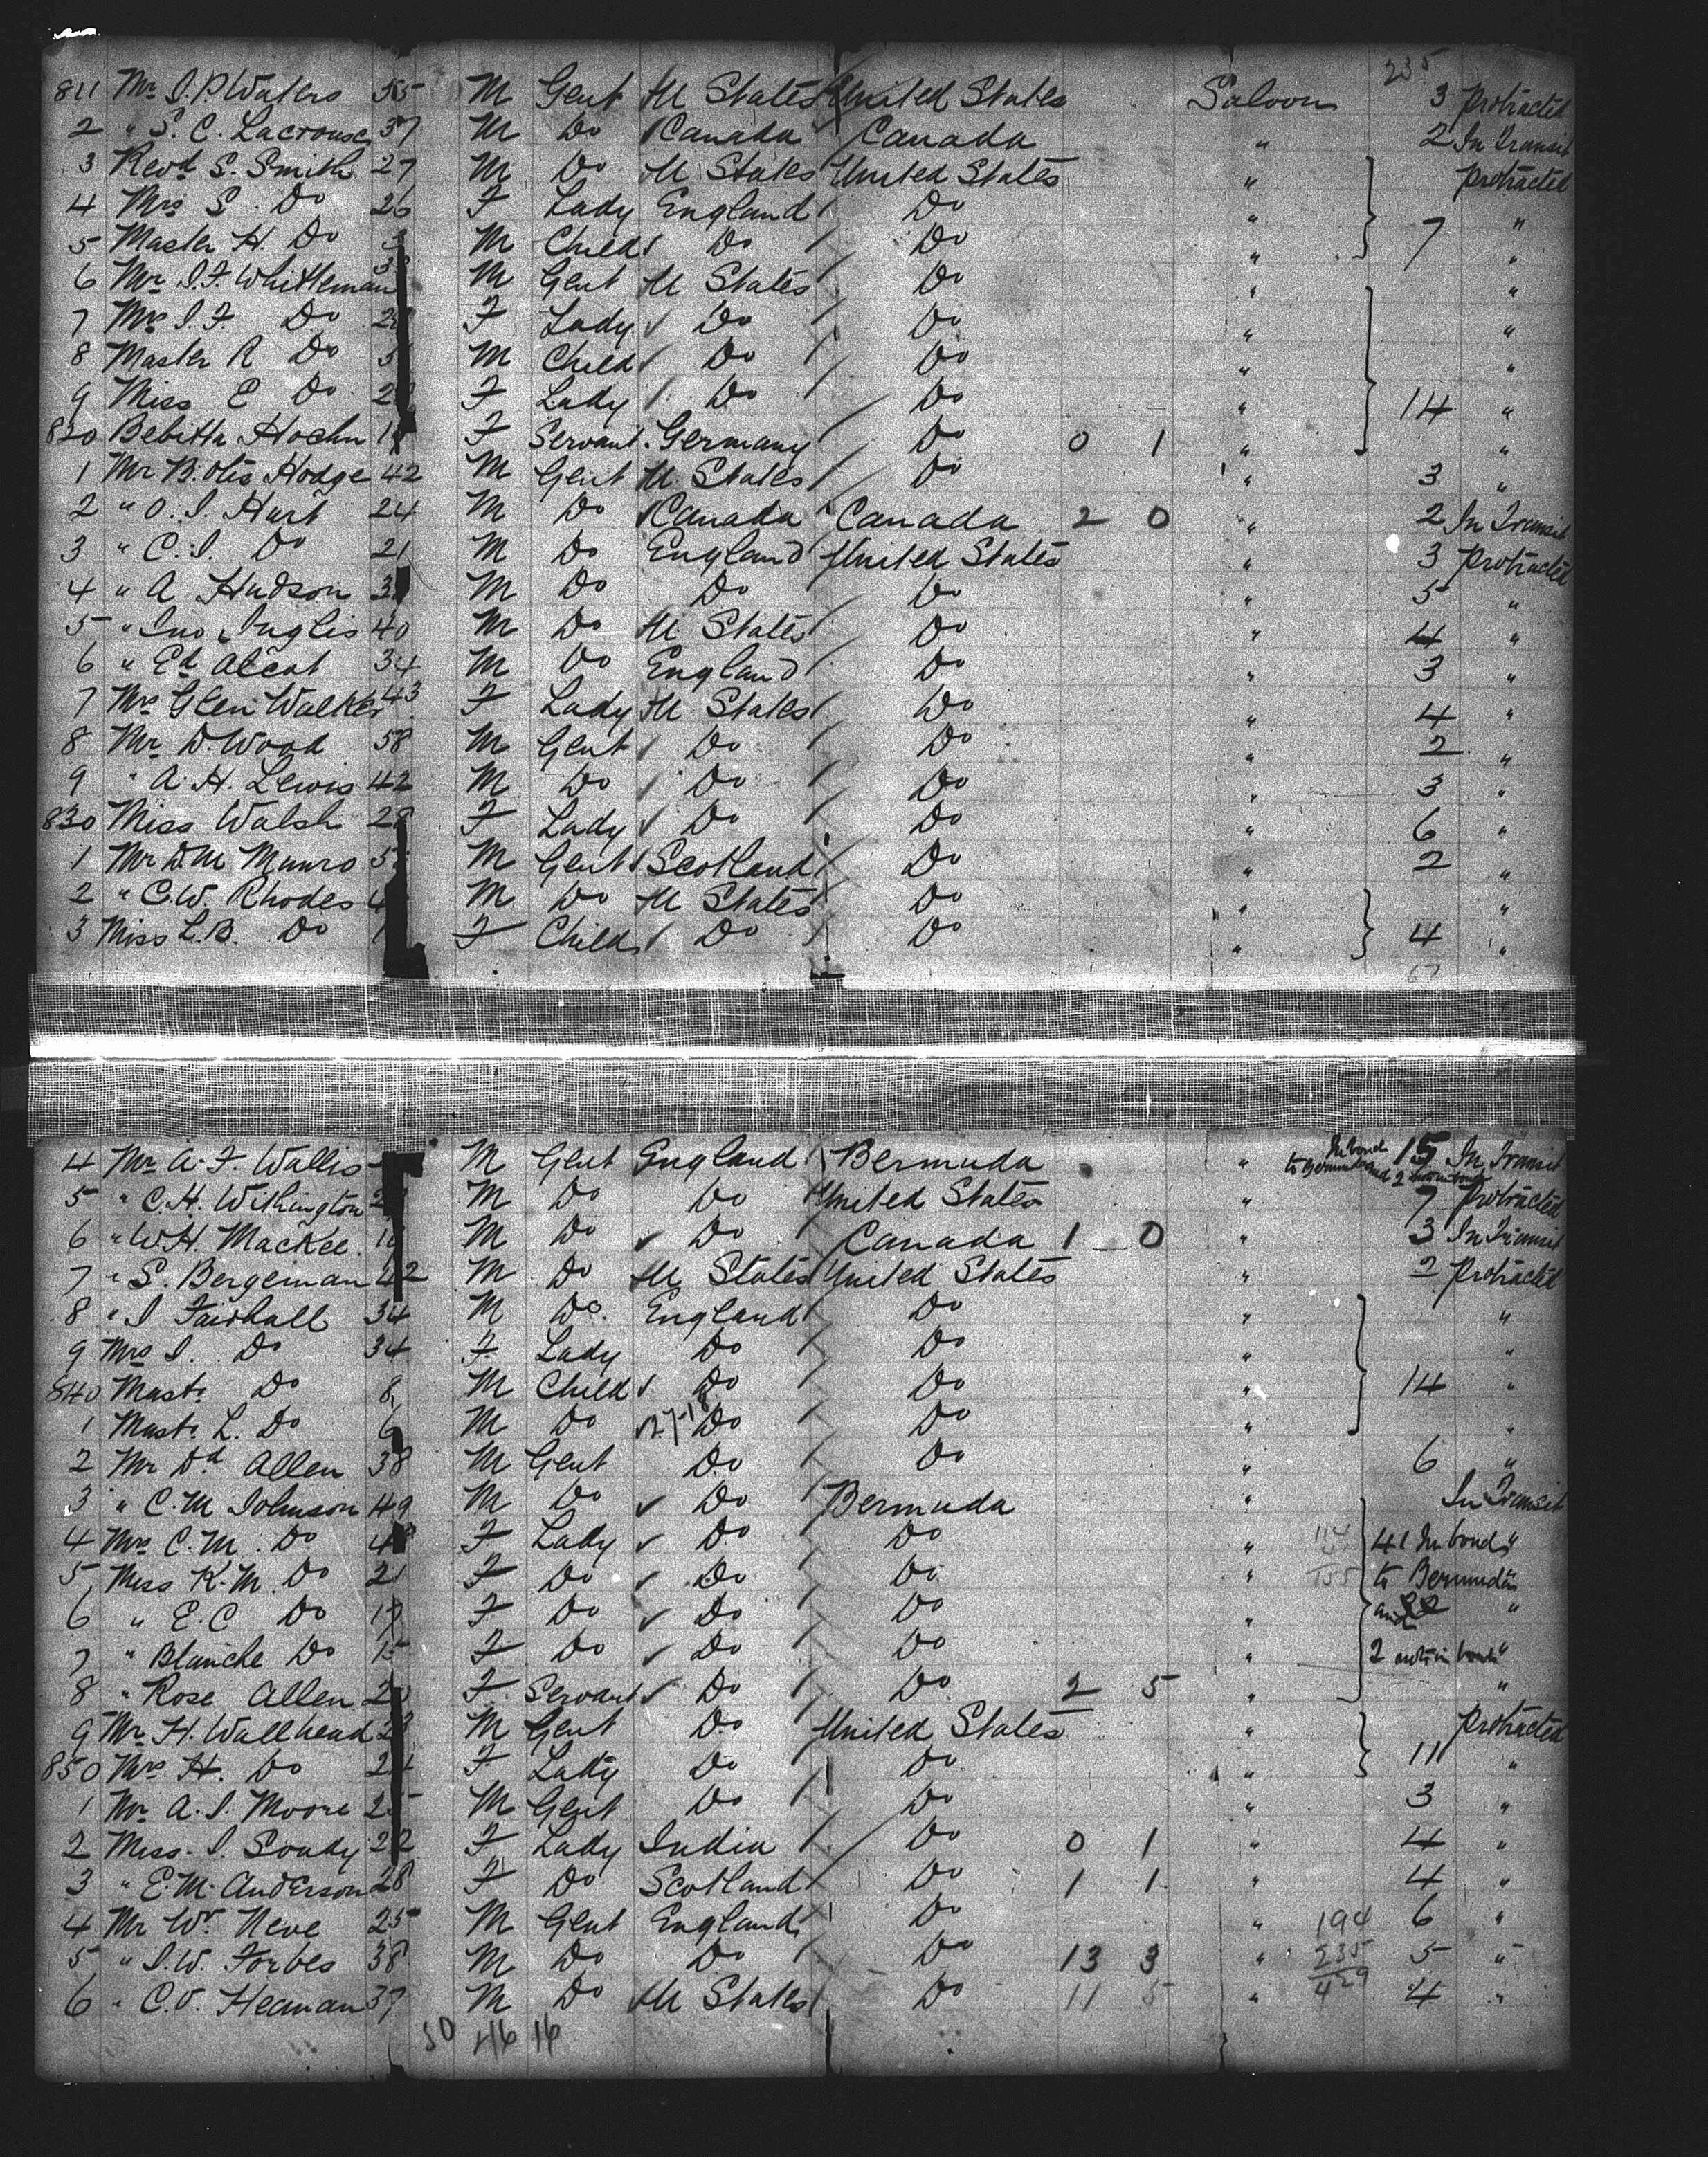 235
811 Mr I. P. Waters 55 M Gent U States United States Saloon 3 Protracted
2 " S. C. Lacrouse 37 M Do Canada Canada " 2 In Transit
3 Revd S. Smith 27 M Do U States United States " Protracted
4 Mrs S. Do 26 F Lady England Do " "
5 Master H. Do M Child Do Do " 7 "
6 Mr I. F. Whitteman M Gent U States Do " "
7 Mrs I. F Do F Lady Do Do " "
8 Master R Do M Child Do Do " "
9 Miss E Do F Lady Do Do " 14 "
820 Bebitta Hoehn F Servant Germany Do 0 1 " "
1 Mr B. Otis Hodge 42 M Gent U. States Do " 3 "
2 " O. I. Hart 24 M Do Canada Canada 2 0 " 2 In Transit
3 " C. I. Do 21 M Do England United States " 3 Protracted
4 " A Hudson M Do Do Do " 5 "
5 " Jno Inglis 40 M Do U States Do " 4 "
6 " Ed Alcot 34 M Do England Do " 3 "
7 Mrs Glen Walker 43 F Lady U States Do " 4 "
8 Mr D. Wood 58 M Gent Do Do " 2 "
9 " A. H. Lewis 42 M Do Do Do " 3 "
830 Miss Walsh 28 F Lady Do Do " 6 "
1 Mr D. M Munro M Gent Scotland Do " 2 "
2 " C. W. Rhodes M Do U States Do " "
3 Miss L. B. Do F Child Do Do " 4 "
67
4 Mr A. F. Wallis M Gent England Bermuda " In bond to Bermuda and 2 15 In Transit
5 " C. H. Withington M Do Do United States " 7 Protracted
6 " W. H. Mackee M Do Do Canada 1 0 " 3 In Transit
7 " S. Bergeman 42 M Do U States United States " 2 Protracted
8 " I Fairhall 34 M Do England Do " "
9 Mrs I. Do 34 F Lady Do Do " "
840 Mastr Do 8 M Child Do Do " 14 "
1 Mastr L. Do 6 M Do Do Do " "
2 Mr Dd Allen 38 M Gent Do Do " 6 "
3 " C. M Johnson 49 M Do Do Bermuda " In Transit
4 Mrs C. M. Do F Lady Do Do " 114 41 In bond "
5 Miss K. M. Do 21 F Do Do Do " 155 to Bermuda "
6 " E. C Do F Do Do Do " and "
7 " Blanche Do 15 F Do Do Do " 2 not in bond "
8 " Rose Allen F Servant Do Do 2 5 " "
9 Mr H. Wallhead M Gent Do United States " Protracted
850 Mrs H. Do 24 F Lady Do Do " 11 "
1 Mr A. I. Moore 25 M Gent Do Do " 3 "
2 Miss I. Soudy 22 F Lady India Do 0 1 " 4 "
3 " E. M. Anderson 28 F Do Scotland Do 1 1 " 4 "
4 Mr Wm Neve 25 M Gent England Do " 194 6 "
5 " I. W. Forbes 38 M Do Do Do 13 3 " 235 5 "
6 " C. V. Heaman 37 M Do U States Do 11 5 " 429 4 "
30 16 16